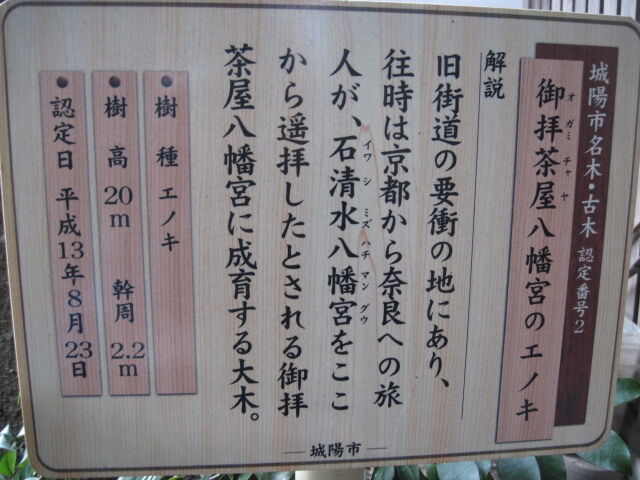 城陽市名木・古木 認定番号2
御拝茶屋八幡宮のエノキ
オガミチャヤ
解説
旧街道の要衝の地にあり、
往時は京都から奈良への旅
人が、石清水八幡宮をここ
イワシミズハチマングウ
から遥拝したとされる御拝
茶屋八幡宮に成育する大木。
樹種 エノキ
樹高 20m 幹周 2.2m
認定日 平成13年8月23日
城陽市